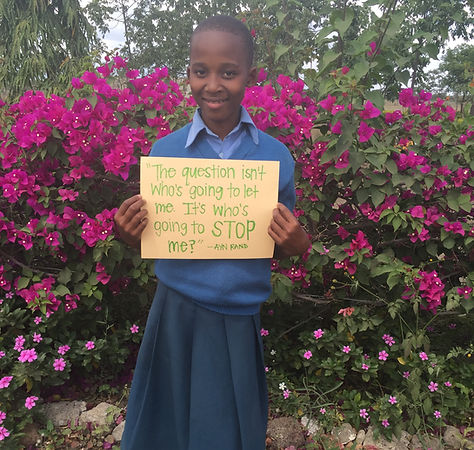 "The question isn't
who's going to let
me. It's who's
going to STOP
me?" —AYN RAND